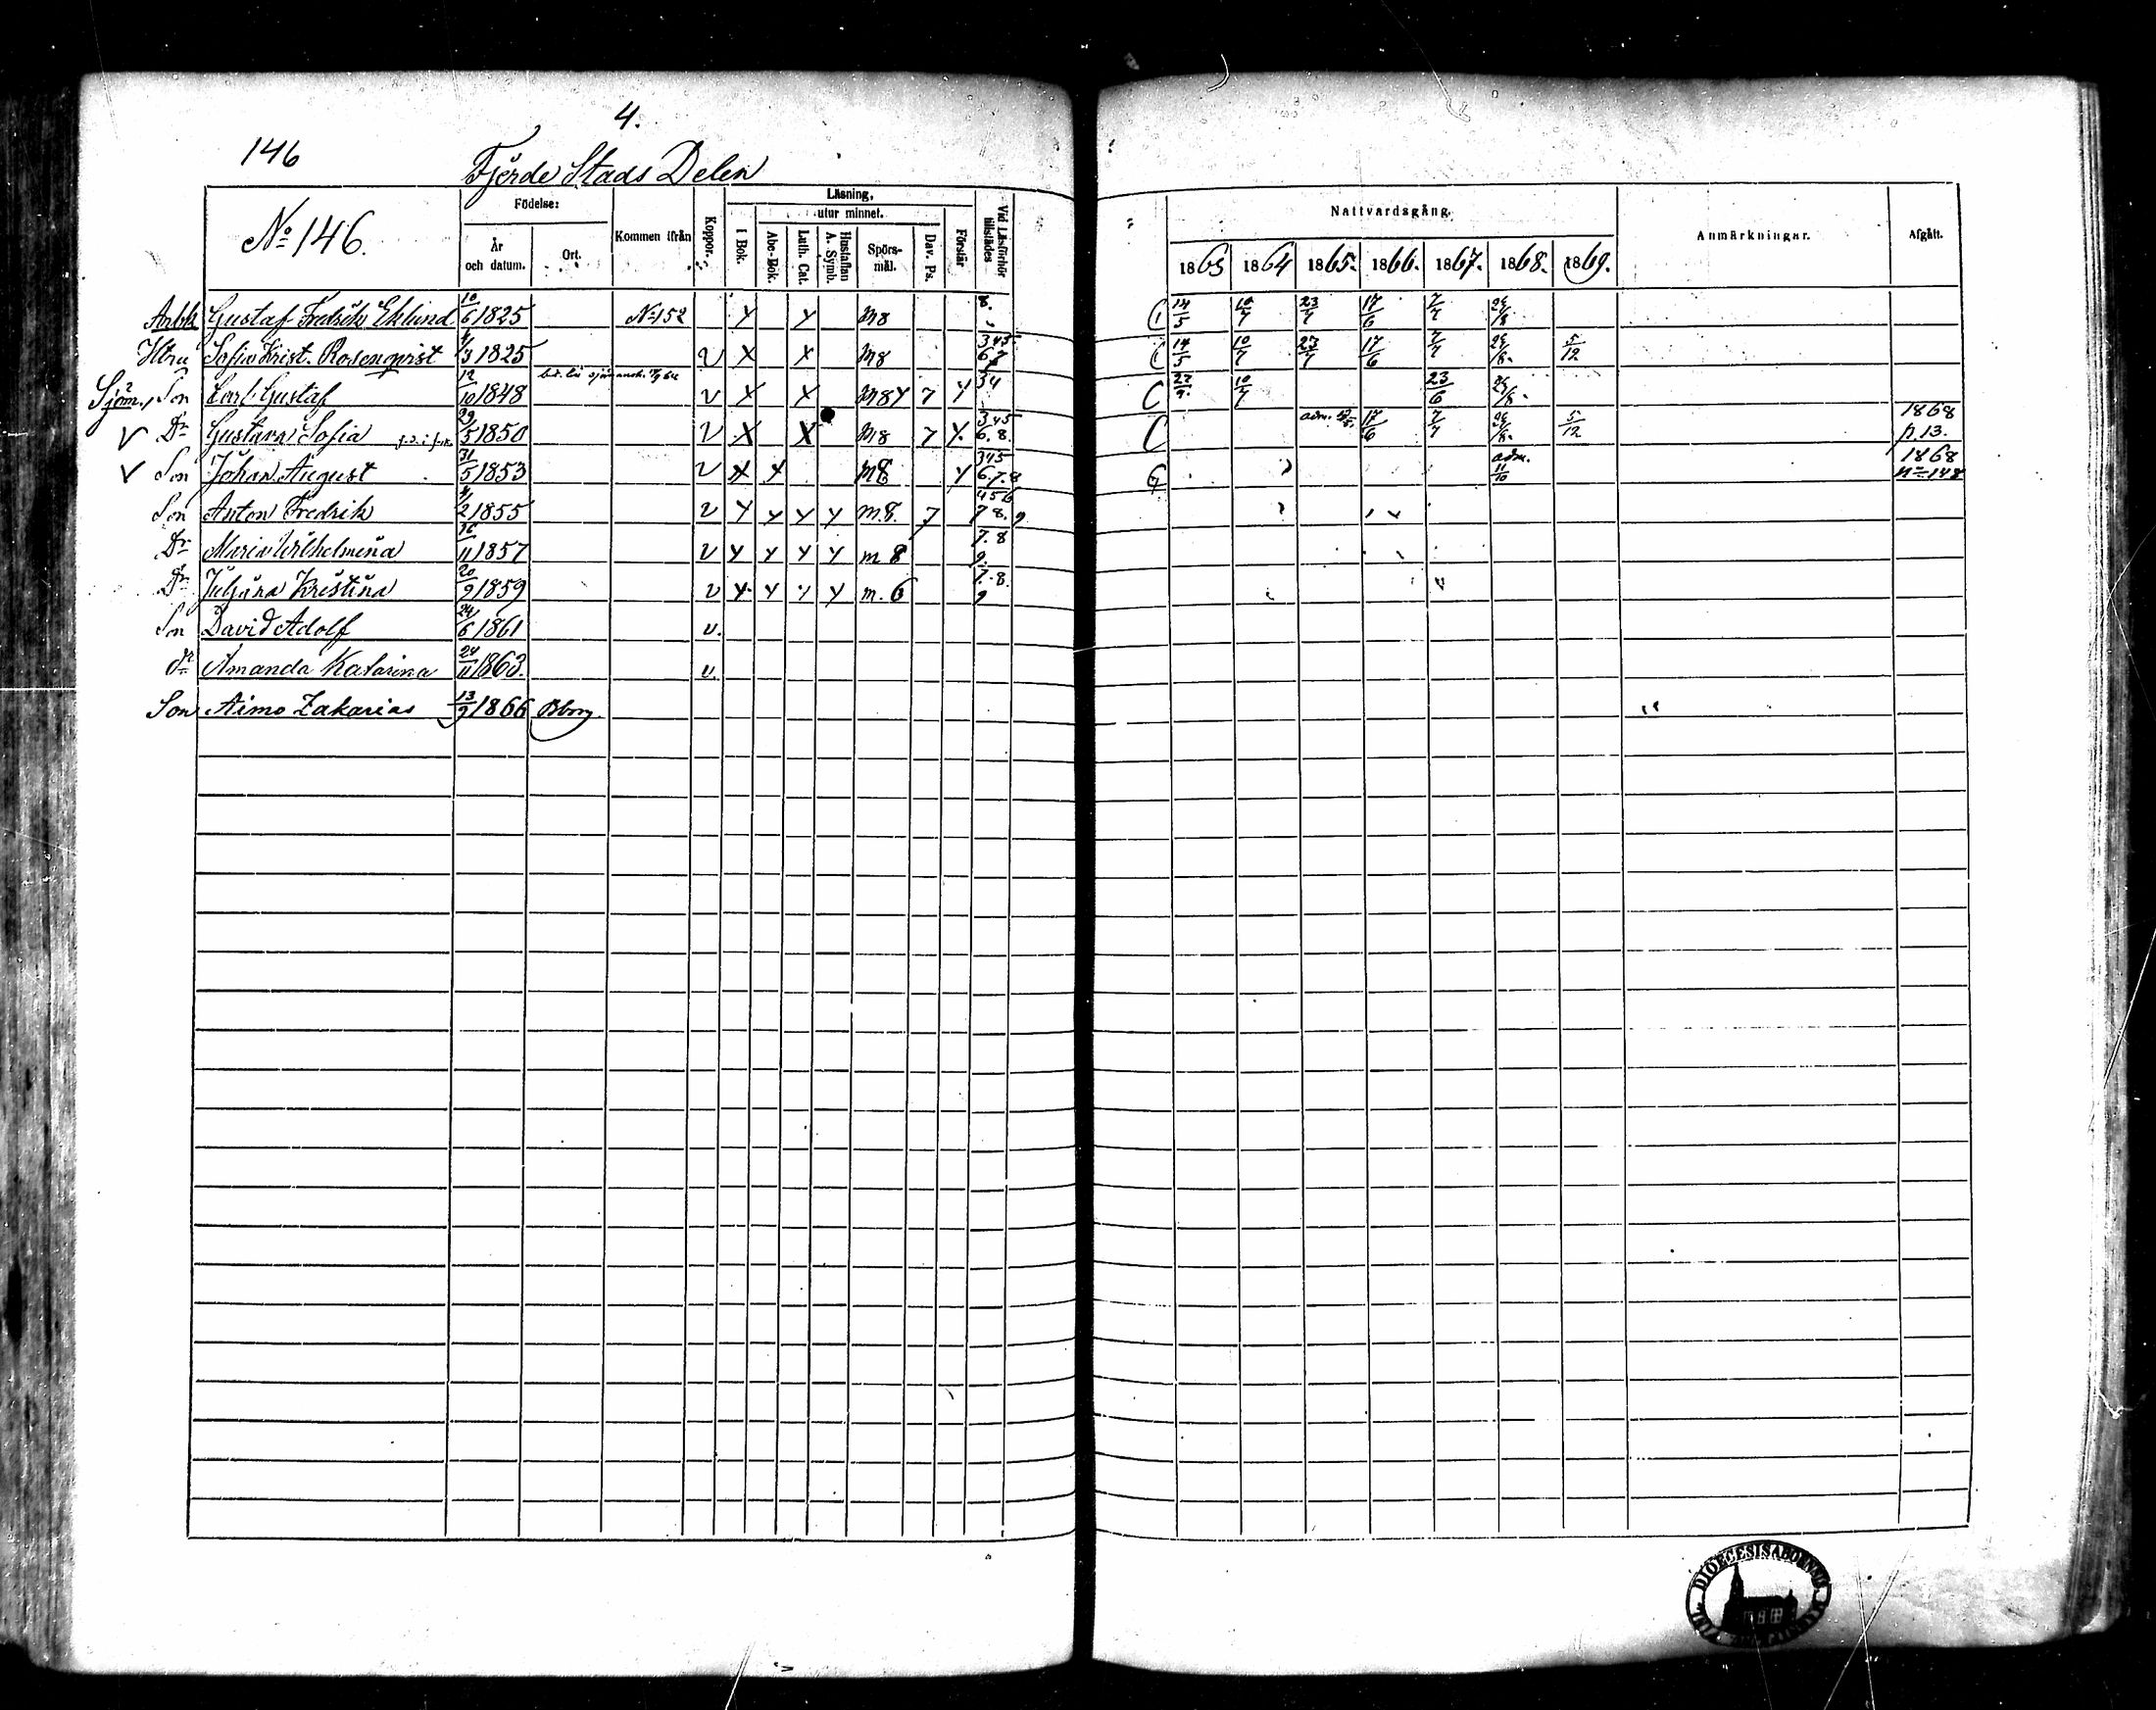 146
4.
Fjerde Stads Delen
No 146.
Födelse:
År och datum.
Ort.
Kommen ifrån
Koppor.
Läsning,
utur minnet.
I Bok.
Abc-Bok.
Luth. Cat.
Hustaflan A. Symb.
Spörsmål.
Dav. Ps.
Förstår
Vid Läsförhör tillstädes
Nattvardsgång.
1863 1864 1865. 1866. 1867. 1868. 1869.
Anmärkningar.
Afgått.
Arbk Gustaf Fredrik Eklund 10/6 1825 No 152 X X M8 8. 14/5 10/7 23/7 17/6 7/7
Hbru Sofia Krist. Rosenqvist 1825 v X X M8 345 67 14/5 10/7 23/7 17/6 7/7 5/12
Sjöm. Son Carl Gustaf 12/10 1848 v X X 7 Y 34 10/7 23/6
v Dr Gustava Sofia 29/5 1850 v X X M8 7 Y. 345 6.8. adm. 17/6 7/7 5/12 1868 p.13.
v Son Johan August 31/5 1853 v X X M8 Y 345 6.7.8 adm. 11/10 1868 No 148
Son Anton Fredrik 1855 v Y Y Y Y m.8. 7 456 78. 9
Dr Maria Wilhelmina 1857 v Y Y Y Y m 8 7.8 9.
Dr Juljana Kristina 20/9 1859 v Y Y Y Y m. 6 7.8. 9
Son David Adolf 24/6 1861 v.
dr Amanda Katarina 24/11 1863. v.
Son Aimo Zakarias 13/9 1866 Bborg